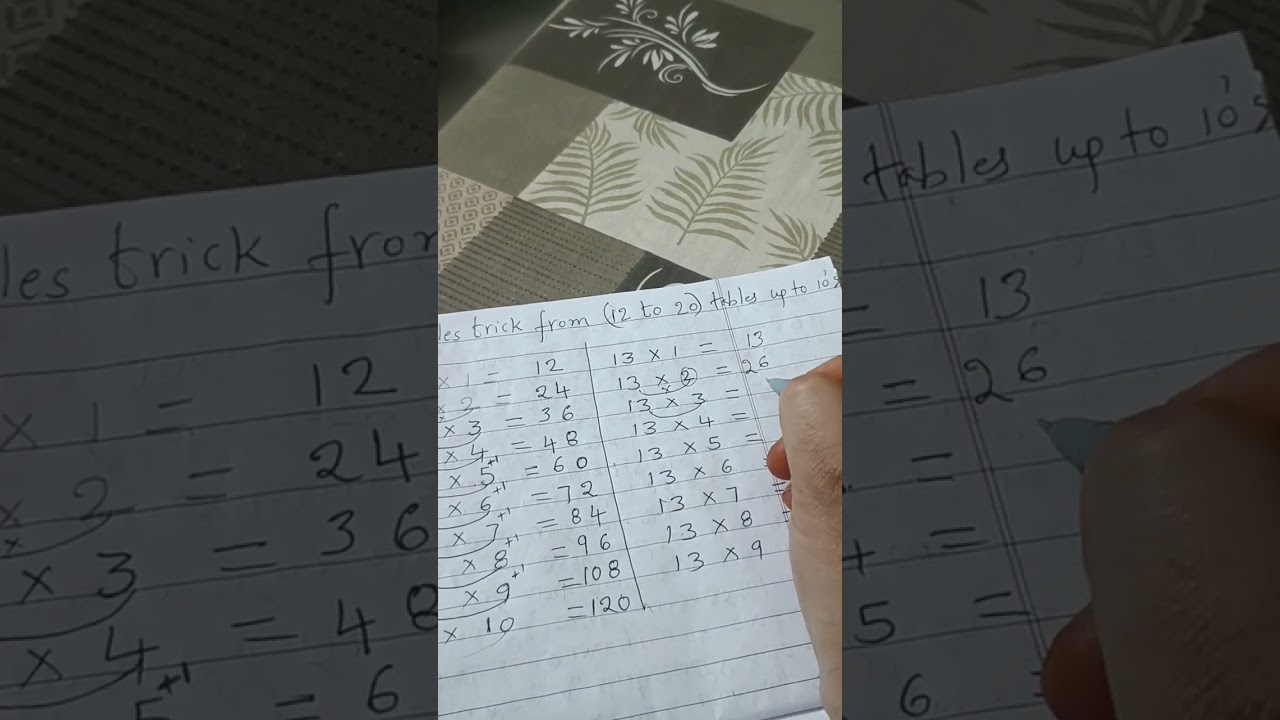 les trick from (12 to 20) tables up to 10's
x 1 = 12
x 2 = 24
x 3 = 36
x 4 = 48
x 5 +1 = 60
x 6 +1 = 72
x 7 +1 = 84
x 8 +1 = 96
x 9 +1 = 108
x 10 = 120
13 x 1 = 13
13 x 2 = 26
13 x 3 =
13 x 4 =
13 x 5 =
13 x 6
13 x 7 =
13 x 8
13 x 9